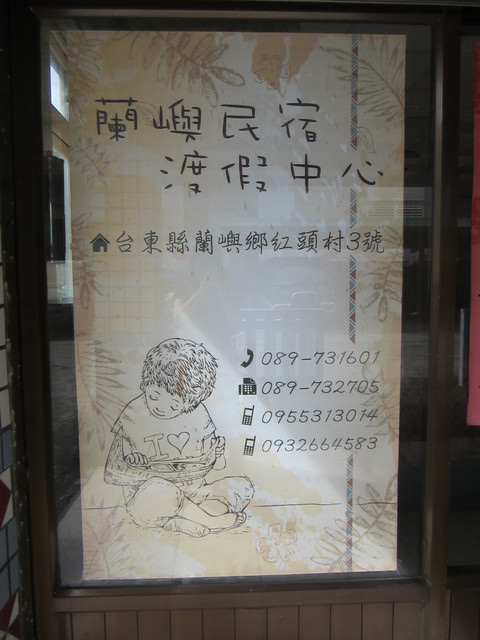 蘭嶼民宿
渡假中心
台東縣蘭嶼鄉紅頭村3號
089-731601
089-732705
0955313014
0932664583
I♡